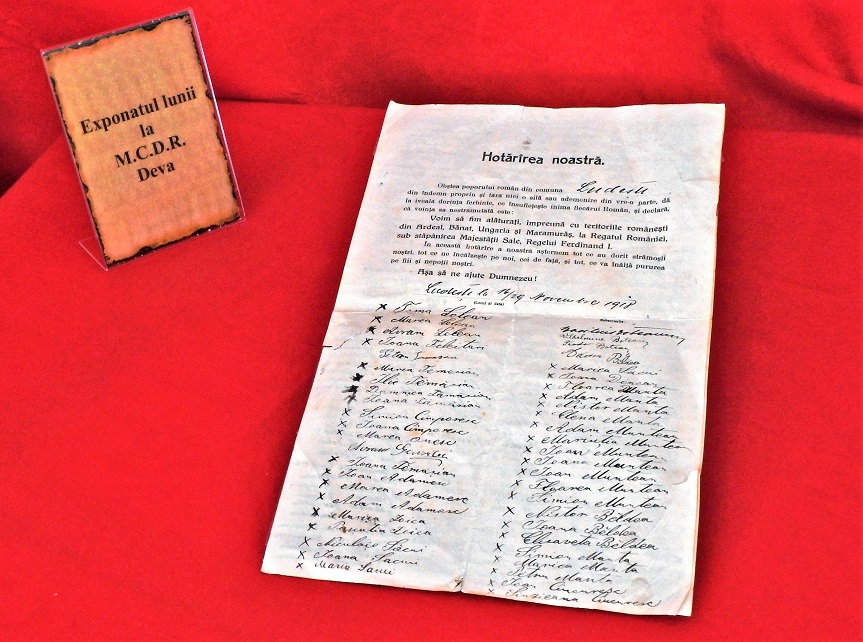 Exponatul lunii
la
M.C.D.R.
Deva
Hotărîrea noastră.
Obștea poporului român din comuna Ludești
din îndemn propriu și fără nici o silă sau ademenire din vre-o parte, dă
la iveală dorința ferbinte, ce însuflețește inima fiecărui Român, și declară,
că voința sa nestrămutată este:
Voim să fim alăturați, împreună cu teritoriile românești
din Ardeal, Bănat, Ungaria și Maramurăș, la Regatul României,
sub stăpânirea Majestății Sale, Regelui Ferdinand I.
În această hotărîre a noastră așternem tot ce au dorit strămoșii
noștri, tot ce ne încălzește pe noi, cei de față, și tot, ce va înălța pururea
pe fiii și nepoții noștri.
Așa să ne ajute Dumnezeu!
Ludești la 16/29 Novembrie 1918
(Locul și data)
x Toma Lolean
x Marea Lolean
x Avram Lolean
x Ioana
x Marea
x Ilie Tămășian
x Ioana Tămășian
x Simion Câmperesc
x Ioana Câmperesc
x Marea
Avram
x Ioana Tămășian
x Ioan Adamesc
x Marea Adamesc
x Adam Adamesc
x Marica Loica
x Loica
x Nicolaie Sacui
x Ioana Sacui
x Maria Sacui
David Bêldea
x Marica Sacui
x Floarea Manta
x Adam Manta
x Nistor Manta
x Elena Manta
x Adam Muntean
x Mariuția Muntean
x Ioan Muntean
x Ioana Muntean
x Ioan Muntean
x Floarea Muntean
x Simion Muntean
x Nistor Bêldea
x Ioana Bêldea
x Elisaveta Bêldea
x Simion Manta
x Marica Manta
x Petru Manta
x Ioan Ciucuresc
x Ciucuresc